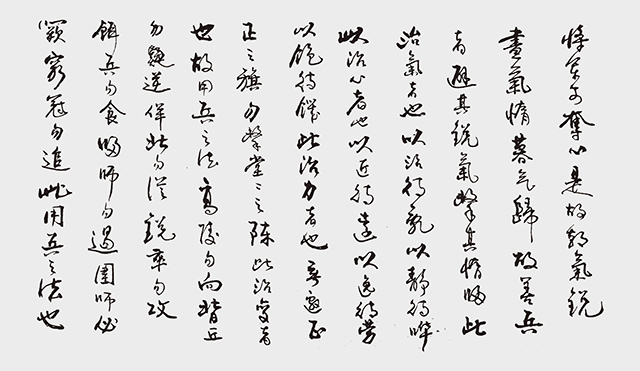 將軍可奪心是故朝氣銳
晝氣惰暮气歸故善兵
者避其銳氣擊其惰歸此
治氣者也以治待亂以靜待嘩
此治心者也以近待遠以逸待勞
以飽待饑此治力者也無邀正
正之旗勿擊堂〻之陳此治變者
也故用兵之法高陵勿向背丘
勿逆佯北勿從銳卒勿攻
餌兵勿食歸師勿遏圍師必
闕窮寇勿追此用兵之法也